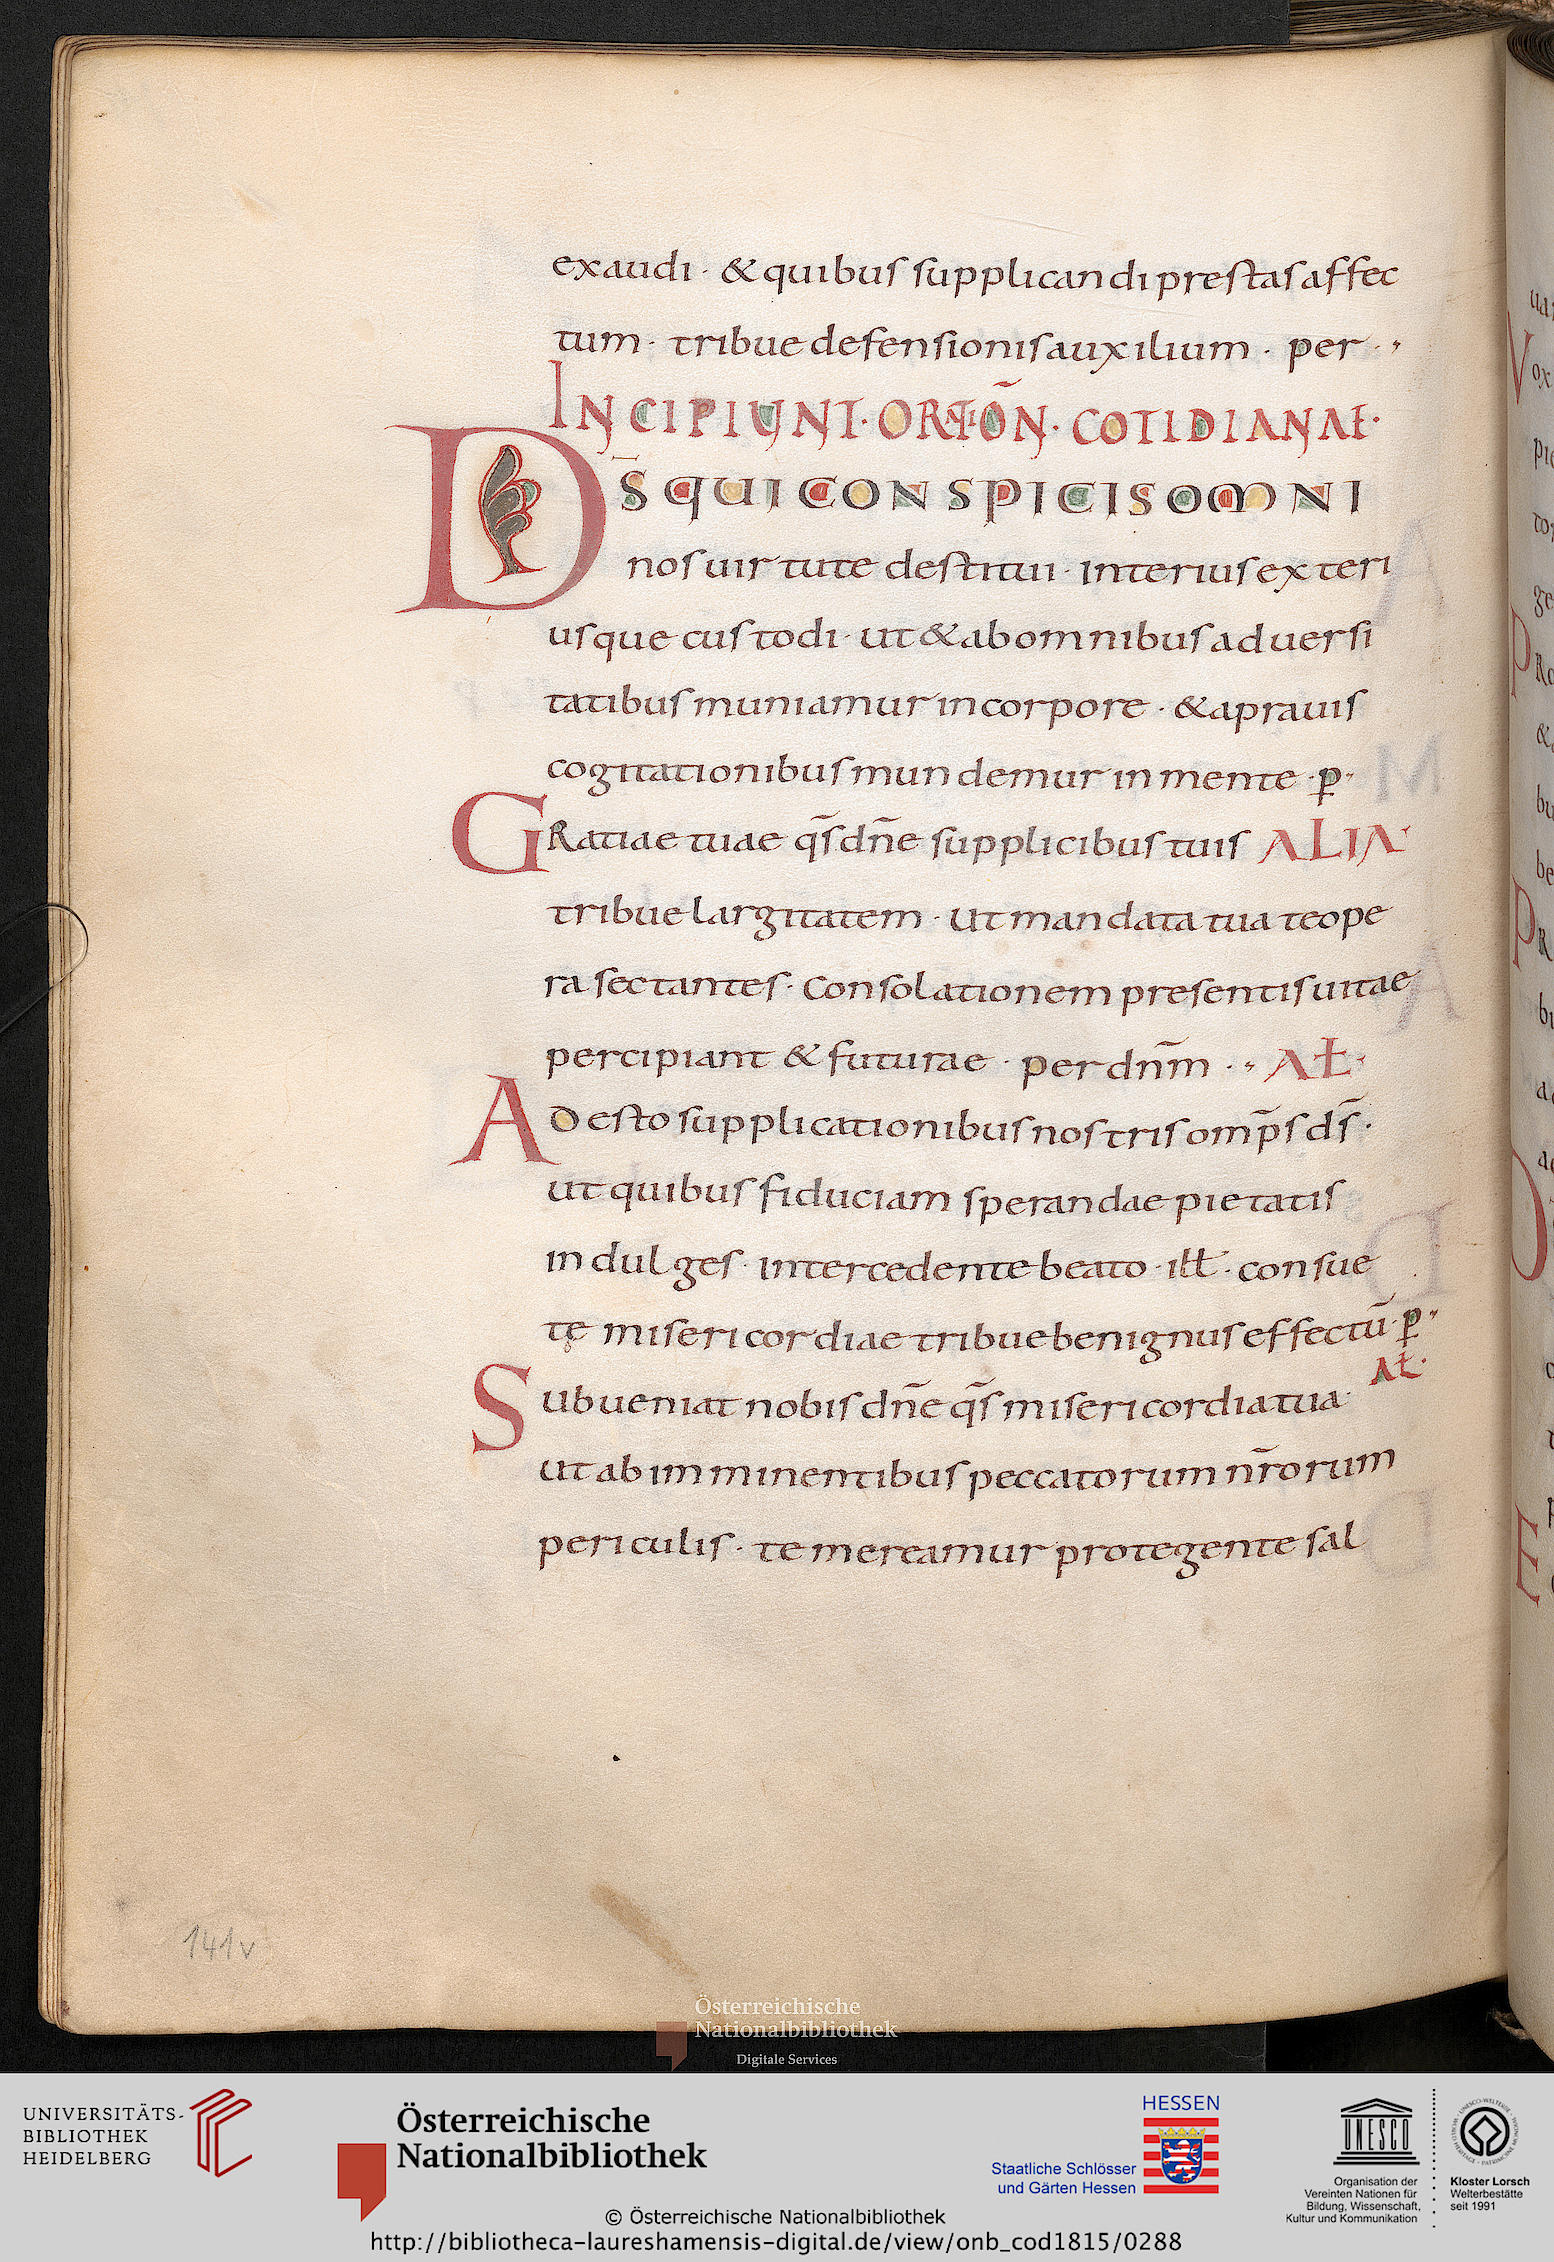 exaudi · & quibus supplicandi prestas affec
tum · tribue defensionis auxilium · per ·
INCIPIUNT · ORATIŌN · COTIDIANAƚ ·
D̄S QUI CONSPICIS OMNI
nos uirtute destitui · interius exteri
usque custodi · ut & ab omnibus aduersi
tatibus muniamur in corpore · & aprauis
cogitationibus mundemur in mente · p̲
GRatiae tuae qs̄ dn̄e supplicibus tuis ALIA
tribue largitatem · ut mandata tua te ope
ra sectantes · Consolationem presentis uitae
percipiant & futurae · per dn̄m · Aƚ ·
Adesto supplicationibus nostris omp̄s ds̄ ·
ut quibus fiduciam sperandae pietatis
indulges · intercedente beato · iƚƚ · consue
tę misericordiae tribue benignus effectū · p̲
Aƚ ·
Subueniat nobis dn̄e qs̄ misericordia tua ·
ut ab imminentibus peccatorum nr̄orum
periculis · te mereamur protegente sal
141v
Österreichische
Nationalbibliothek
Digitale Services
UNIVERSITÄTS-
BIBLIOTHEK
HEIDELBERG
Österreichische
Nationalbibliothek
HESSEN
Staatliche Schlösser
und Gärten Hessen
UNESCO
Organisation der
Vereinten Nationen für
Bildung, Wissenschaft,
Kultur und Kommunikation
Kloster Lorsch
Welterbestätte
seit 1991
© Österreichische Nationalbibliothek
http://bibliotheca-laureshamensis-digital.de/view/onb_cod1815/0288